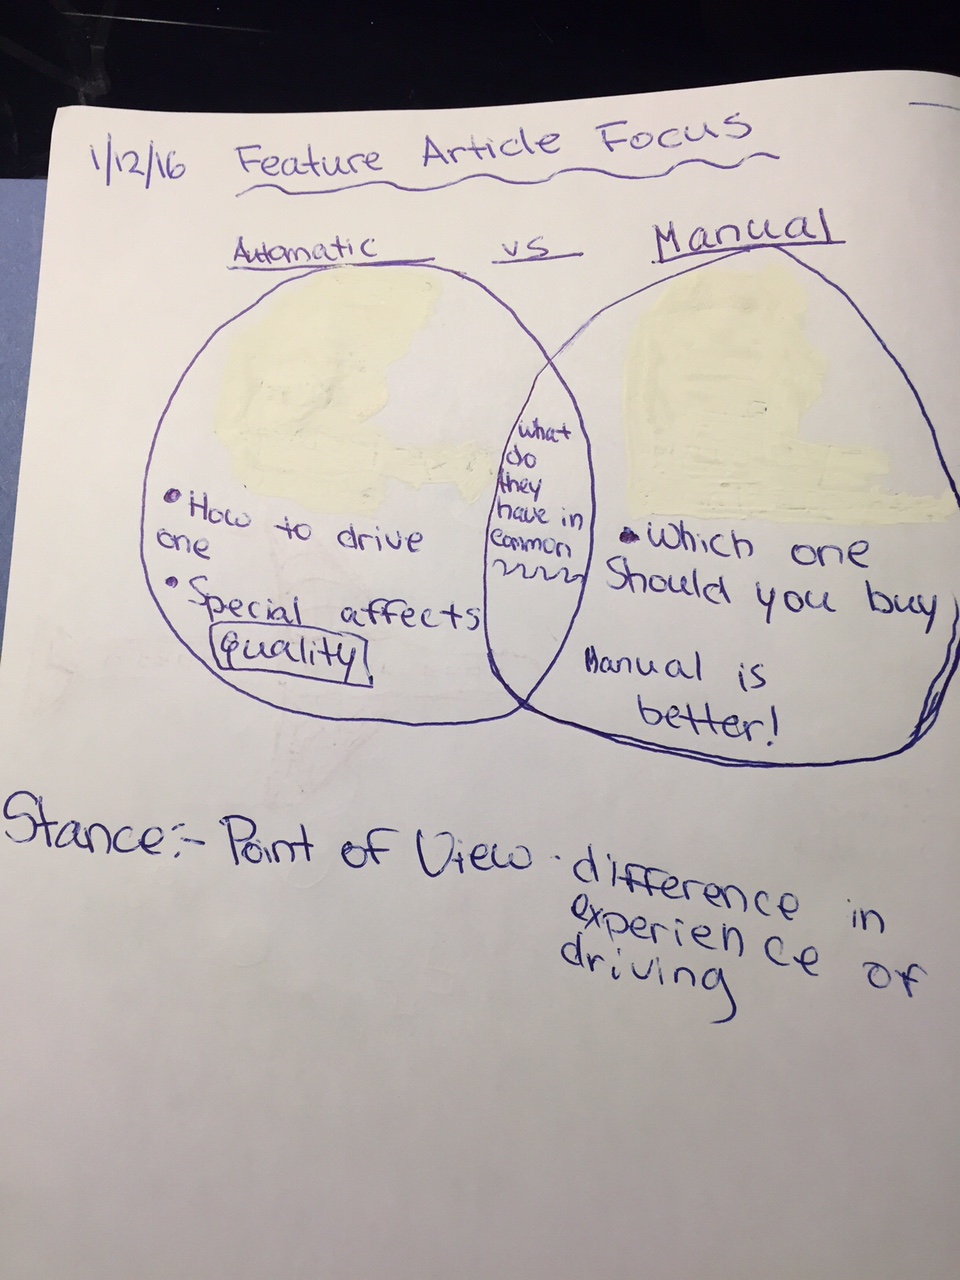 1/12/16 Feature Article Focus
Automatic vs Manual
• How to drive
one
• Special affects
quality
what
do
they
have in
common
• Which one
Should you buy
Manual is
better!
Stance:- Point of View - difference in
experience of
driving